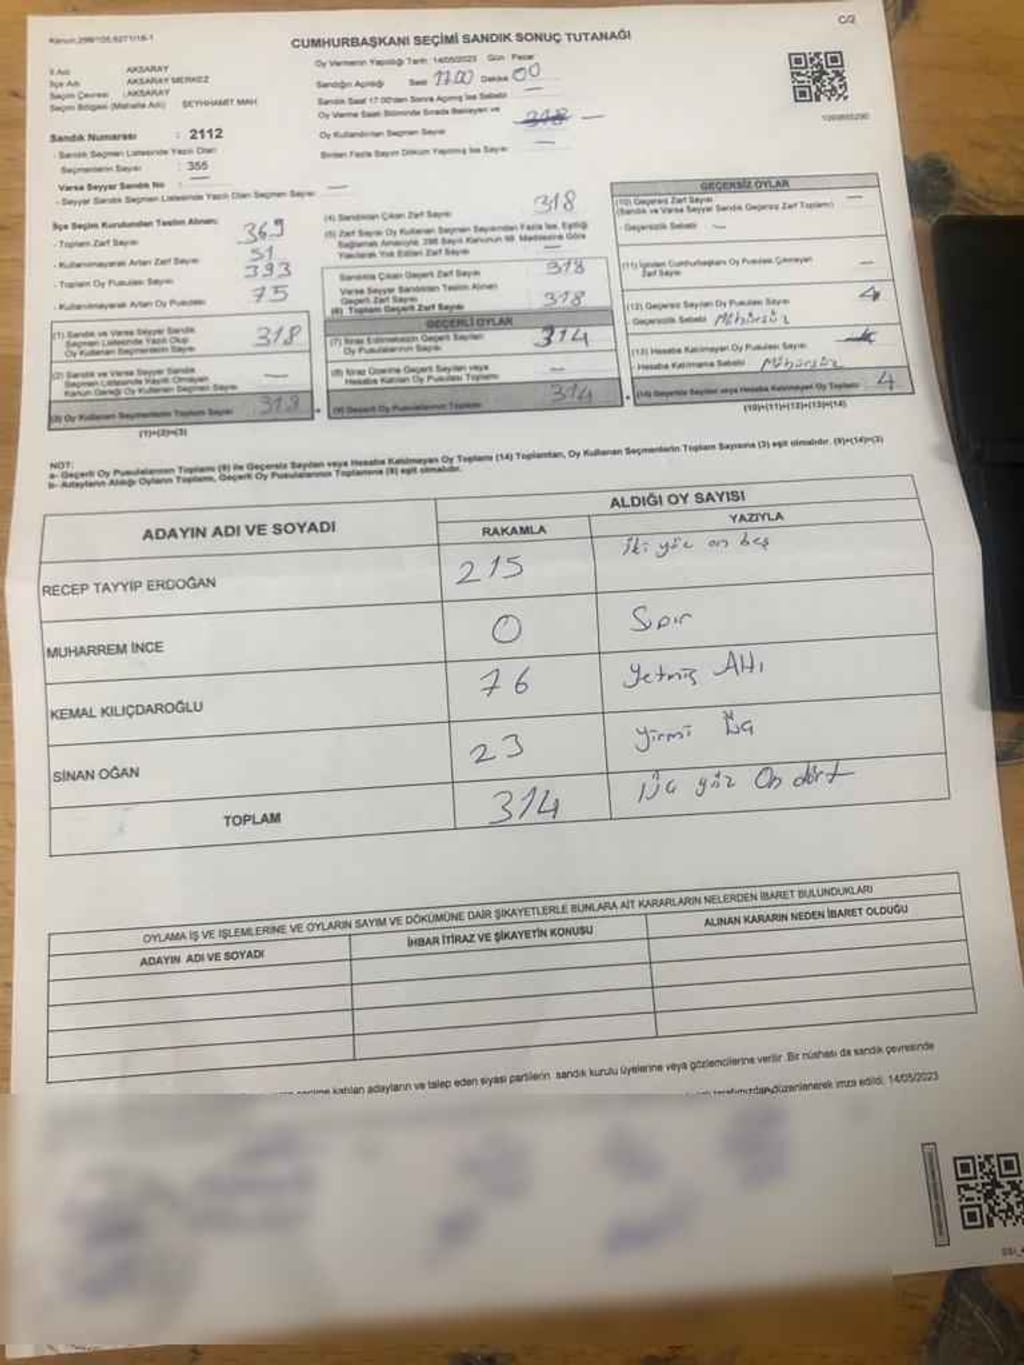 Kanun:298/105,6271/16-1
C/2
CUMHURBAŞKANI SEÇİMİ SANDIK SONUÇ TUTANAĞI
İl Adı AKSARAY
İlçe Adı AKSARAY MERKEZ
Seçim Çevresi : AKSARAY
Seçim Bölgesi (Mahalle Adı) ŞEYHHAMİT MAH.
Oy Vermenin Yapıldığı Tarih: 14/05/2023 Gün: Pazar
Sandığın Açıldığı Saat 17.00 Dakika 00
Sandık Saat 17.00'den Sonra Açılmış İse Sebebi
Oy Verme Saati Bitiminde Sırada Bekleyen ve
Oy Kullandırılan Seçmen Sayısı 318 —
Birden Fazla Sayım Döküm Yapılmış İse Sayısı —
Sandık Numarası : 2112
- Sandık Seçmen Listesinde Yazılı Olan
Seçmenlerin Sayısı : 355
Varsa Seyyar Sandık No —
- Seyyar Sandık Seçmen Listesinde Yazılı Olan Seçmen Sayısı —
İlçe Seçim Kurulundan Teslim Alınan:
- Toplam Zarf Sayısı 369
- Kullanılmayarak Artan Zarf Sayısı 51
- Toplam Oy Pusulası Sayısı 393
- Kullanılmayarak Artan Oy Pusulası 75
(1) Sandık ve Varsa Seyyar Sandık
Seçmen Listesinde Yazılı Olup
Oy Kullanan Seçmenlerin Sayısı 318
(2) Sandık ve Varsa Seyyar Sandık
Seçmen Listesinde Kayıtlı Olmayan
Kanun Gereği Oy Kullanan Seçmen Sayısı —
(3) Oy Kullanan Seçmenlerin Toplam Sayısı 318
(1)+(2)=(3)
(4) Sandıktan Çıkan Zarf Sayısı 318
(5) Zarf Sayısı Oy Kullanan Seçmen Sayısından Fazla İse, Eşitliği
Sağlamak Amacıyla, 298 Sayılı Kanunun 98. Maddesine Göre
Yakılarak Yok Edilen Zarf Sayısı —
Sandıkta Çıkan Geçerli Zarf Sayısı 318
Varsa Seyyar Sandıktan Teslim Alınan
Geçerli Zarf Sayısı
(6) Toplam Geçerli Zarf Sayısı 318
GEÇERLİ OYLAR
(7) İtiraz Edilmeksizin Geçerli Sayılan
Oy Pusulalarının Sayısı 314
(8) İtiraz Üzerine Geçerli Sayılan veya
Hesaba Katılan Oy Pusulası Toplamı —
(9) Geçerli Oy Pusulalarının Toplamı 314
GEÇERSİZ OYLAR
(10) Geçersiz Zarf Sayısı
(Sandık ve Varsa Seyyar Sandık Geçersiz Zarf Toplamı) —
- Geçersizlik Sebebi —
(11) İçinden Cumhurbaşkanı Oy Pusulası Çıkmayan
Zarf Sayısı —
(12) Geçersiz Sayılan Oy Pusulası Sayısı 4
- Geçersizlik Sebebi Mühürsüz
(13) Hesaba Katılmayan Oy Pusulası Sayısı
- Hesaba Katılmama Sebebi Mühürsüz
(14) Geçersiz Sayılan veya Hesaba Katılmayan Oy Toplamı 4
(10)+(11)+(12)+(13)=(14)
NOT:
a- Geçerli Oy Pusulalarının Toplamı (9) ile Geçersiz Sayılan veya Hesaba Katılmayan Oy Toplamı (14) Toplamları, Oy Kullanan Seçmenlerin Toplam Sayısına (3) eşit olmalıdır. (9)+(14)=(3)
b- Adayların Aldığı Oyların Toplamı, Geçerli Oy Pusulalarının Toplamına (9) eşit olmalıdır.
ADAYIN ADI VE SOYADI
ALDIĞI OY SAYISI
RAKAMLA YAZIYLA
RECEP TAYYİP ERDOĞAN 215 iki yüz on beş
MUHARREM İNCE 0 Sıfır
KEMAL KILIÇDAROĞLU 76 Yetmiş Altı
SİNAN OĞAN 23 yirmi Üç
TOPLAM 314 Üç yüz On dört
OYLAMA İŞ VE İŞLEMLERİNE VE OYLARIN SAYIM VE DÖKÜMÜNE DAİR ŞİKAYETLERLE BUNLARA AİT KARARLARIN NELERDEN İBARET BULUNDUKLARI
ADAYIN ADI VE SOYADI İHBAR İTİRAZ VE ŞİKAYETİN KONUSU ALINAN KARARIN NEDEN İBARET OLDUĞU
katılan adayların ve talep eden siyasi partilerin sandık kurulu üyelerine veya gözlemcilerine verilir. Bir nüshası da sandık çevresinde
tarafımızdan düzenlenerek imza edildi. 14/05/2023